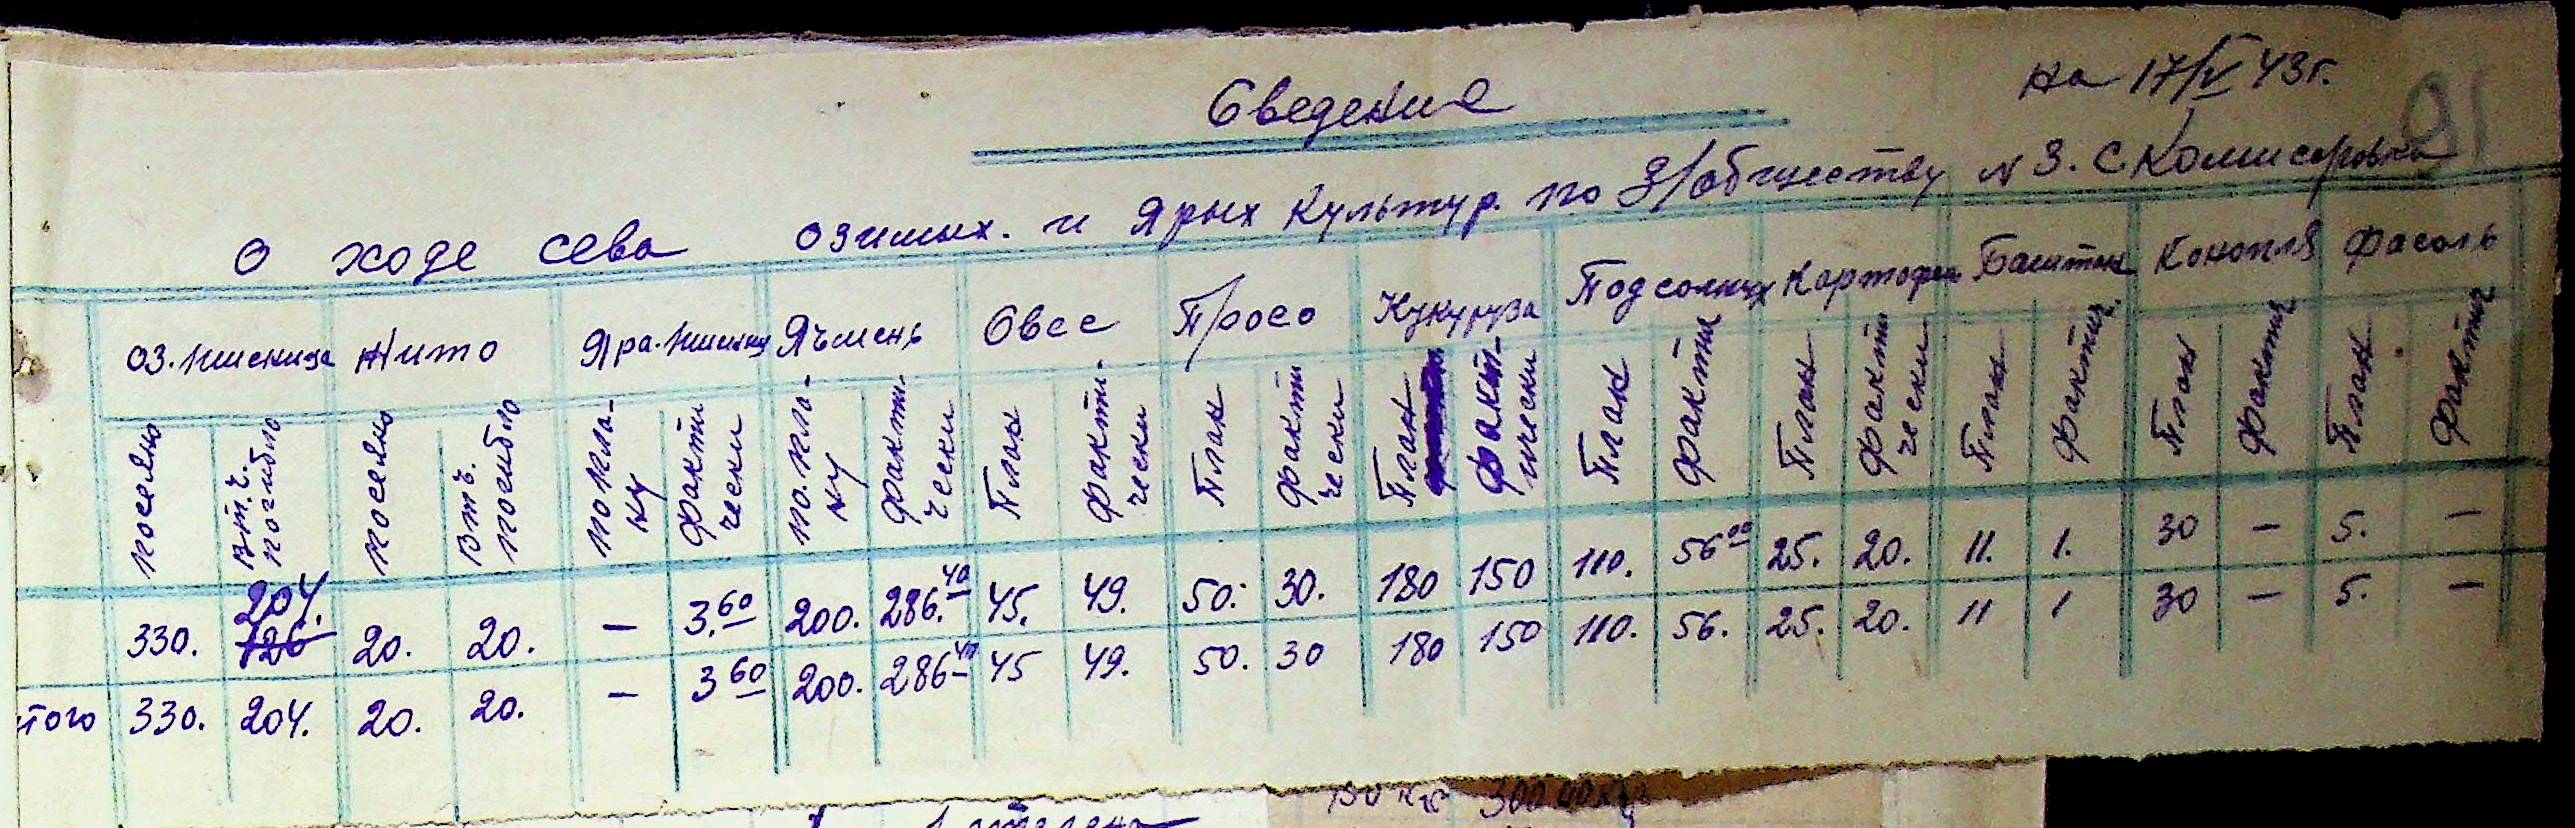 на 17/V 43г.
91
Сведение
О ходе сева озимых. и Ярых Культур. по З/обществу N 3. С. Комисаровка
Оз. пшеница Жито Яра. пшениц Ячмень Овес Просо Кукуруза Подсолнух Картофель Баштан Конопля Фасоль
посеяно В т.ч. погибло посеяно В т.ч. погибло по пла-ну факти чески по. пла-ну факти-чески План факти-чески План факти чески План факти-чески План фактич План факти чески План фактич. План фактич План фактич
330. 204. 126 20. 20. — 3.60 200. 286.40 45. 49. 50. 30. 180 150 110. 56 00 25. 20. 11. 1. 30 — 5. —
того 330. 204. 20. 20. — 3 60 200. 286 40 45 49. 50. 30 180 150 110. 56. 25. 20. 11 1 30 — 5. —